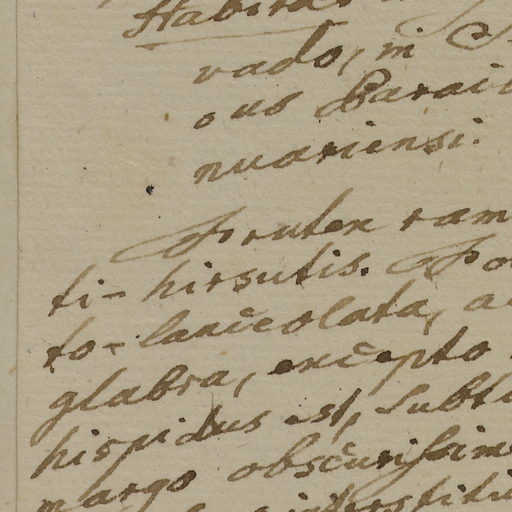 Habitat
vado, in S
ous Barai
nuariensi.
Frutex ram
ti-hirsutis. Fo
to-lanceolata, a
glabra, excepto
hispidus est, subt
margo obscurissim
interstiti